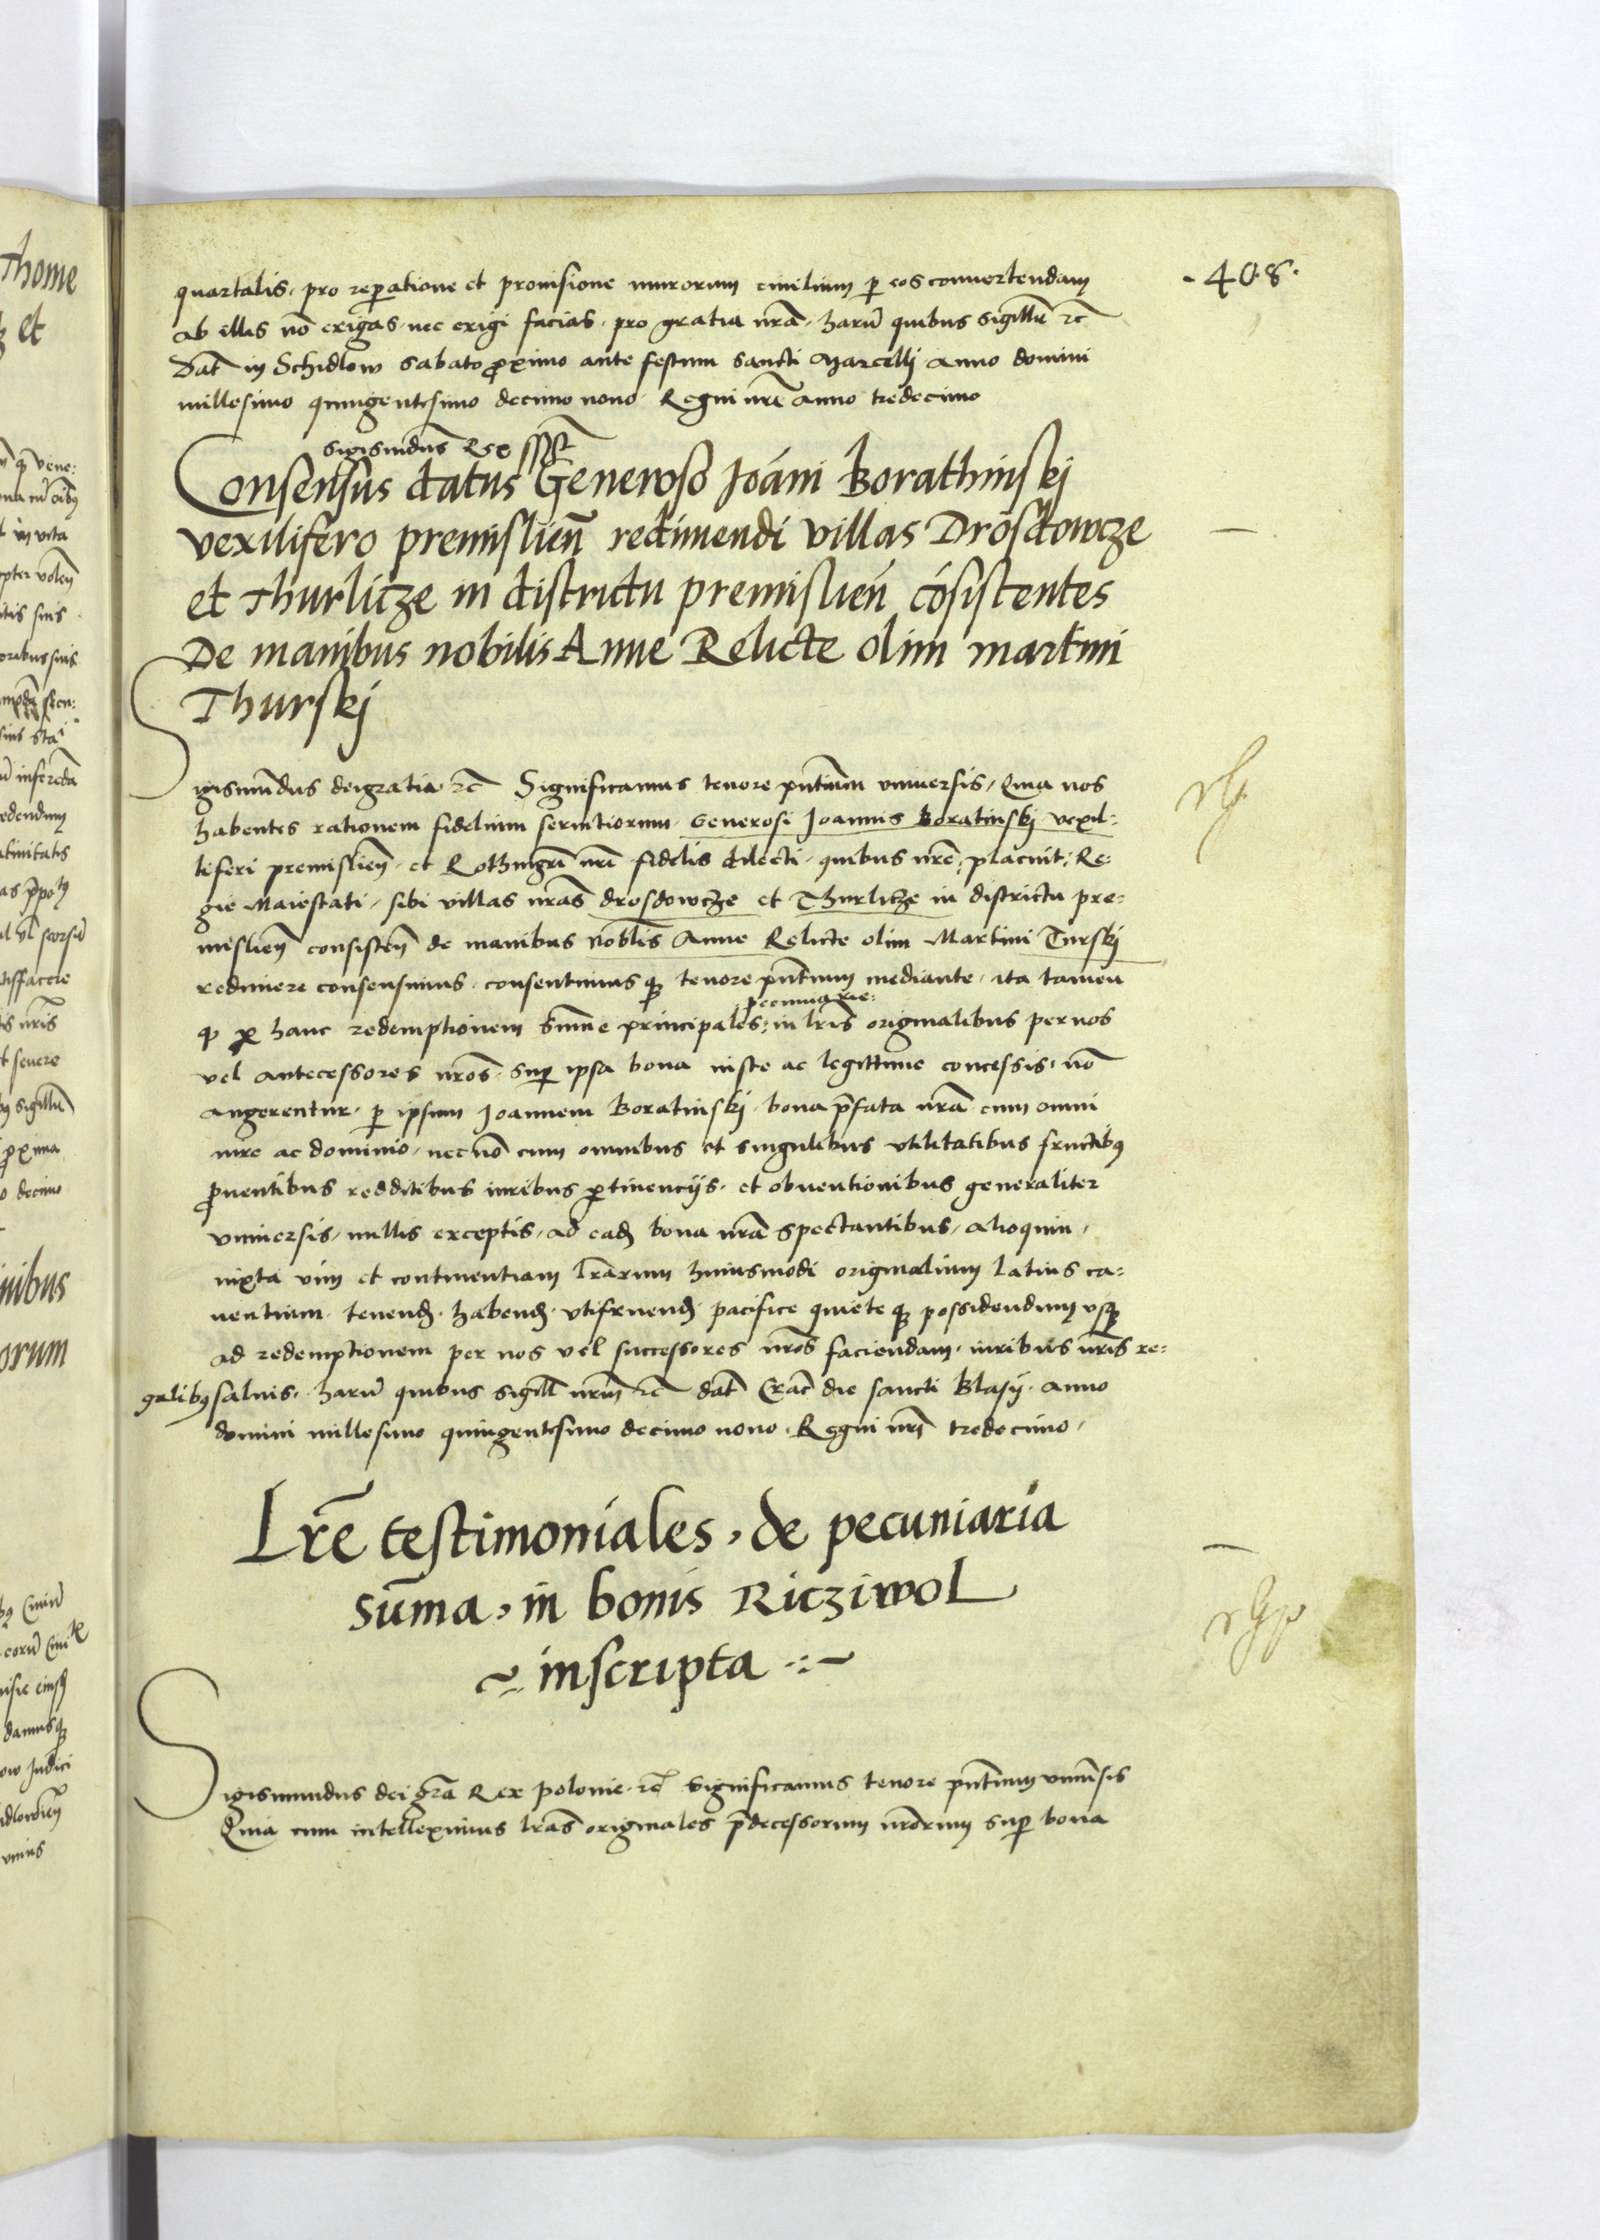 ·408·
quartalis, pro reparatione et prouisione murorum ciuilium p eos conuertendam
ab illis nō exigas, nec exigi facias, pro gratia nrā, harū quibus sigillū rc̄
Dat̄ in Schidlow sabato proximo ante festum sancti Marcelli Anno domini
millesimo quingentesimo decimo nono Regni nrī anno tredecimo
Sigismūdus Rex
Consensus datus Generoso Joāni Borathinskj
vexilifero premislieñ redimendi villas Drosdowcze
et Thurlicze in districtu premislieñ cōsistentes
De manibus nobilis Anne Relicte olim martini
Thurskj
Sigismūdus dei gratia rc̄ Significamus tenore pn̄tium vniuersis, Quia nos
habentes rationem fidelium seruitiorum, Generosi Joannis Boratinskj vexil:
liferi premislieñ, et Rothmgrī nrī fidelis dilecti, quibus nrē: placuit: Re:
gie Maiestati, sibi villas nrās drosdowcze et Thurlicze in districtu pre:
mislieñ consisteñ de manibus nobīlis Anne Relicte olim Martini Turskj
redimere consensimus, consentimusq tenore pn̄tium mediante, ita tamen
pecuniarie:
q p hanc redemptionem sūme principales: in lrīs originalibus per nos
vel antecessores nrōs, sup ipsa bona iuste ac legittime concessis, nō
augerentur, p ipsum Joannem Boratinskj, bona p̄fata nrā cum omni
iure ac dominio, nec nō cum omnibus et singulibus vtilitatibus fructibꝰ
prouentibus redditibus iuribus ptinencijs, et obuentionibus generaliter
vniuersis, nullis exceptis, ad ead bona nrā spectantibus, alioquin,
iuxta vim et continentiam lrārum huiusmodi originalium latius ca:
uentium, tenend, habend, vtifruend, pacifice quiete q possidendum vsq
ad redemptionem per nos vel successores nrōs faciendam, iuribus nrīs re:
galibꝰ saluis, harū quibus sigill nrm̄ rc̄ dat̄ Crac̄ die sancti Blasij, Anno
domini millesimo quingentesimo decimo nono, Regni nrī tredecimo,
Lrē testimoniales, de pecuniaria
sūma, in bonis Ricziwol
inscripta
Sigismundus dei grā Rex polonie, rc̄ Significamus tenore pn̄tium vniūsis
Quia cum intelleximus lrās originales p̄decessorum nrōrum sup bona